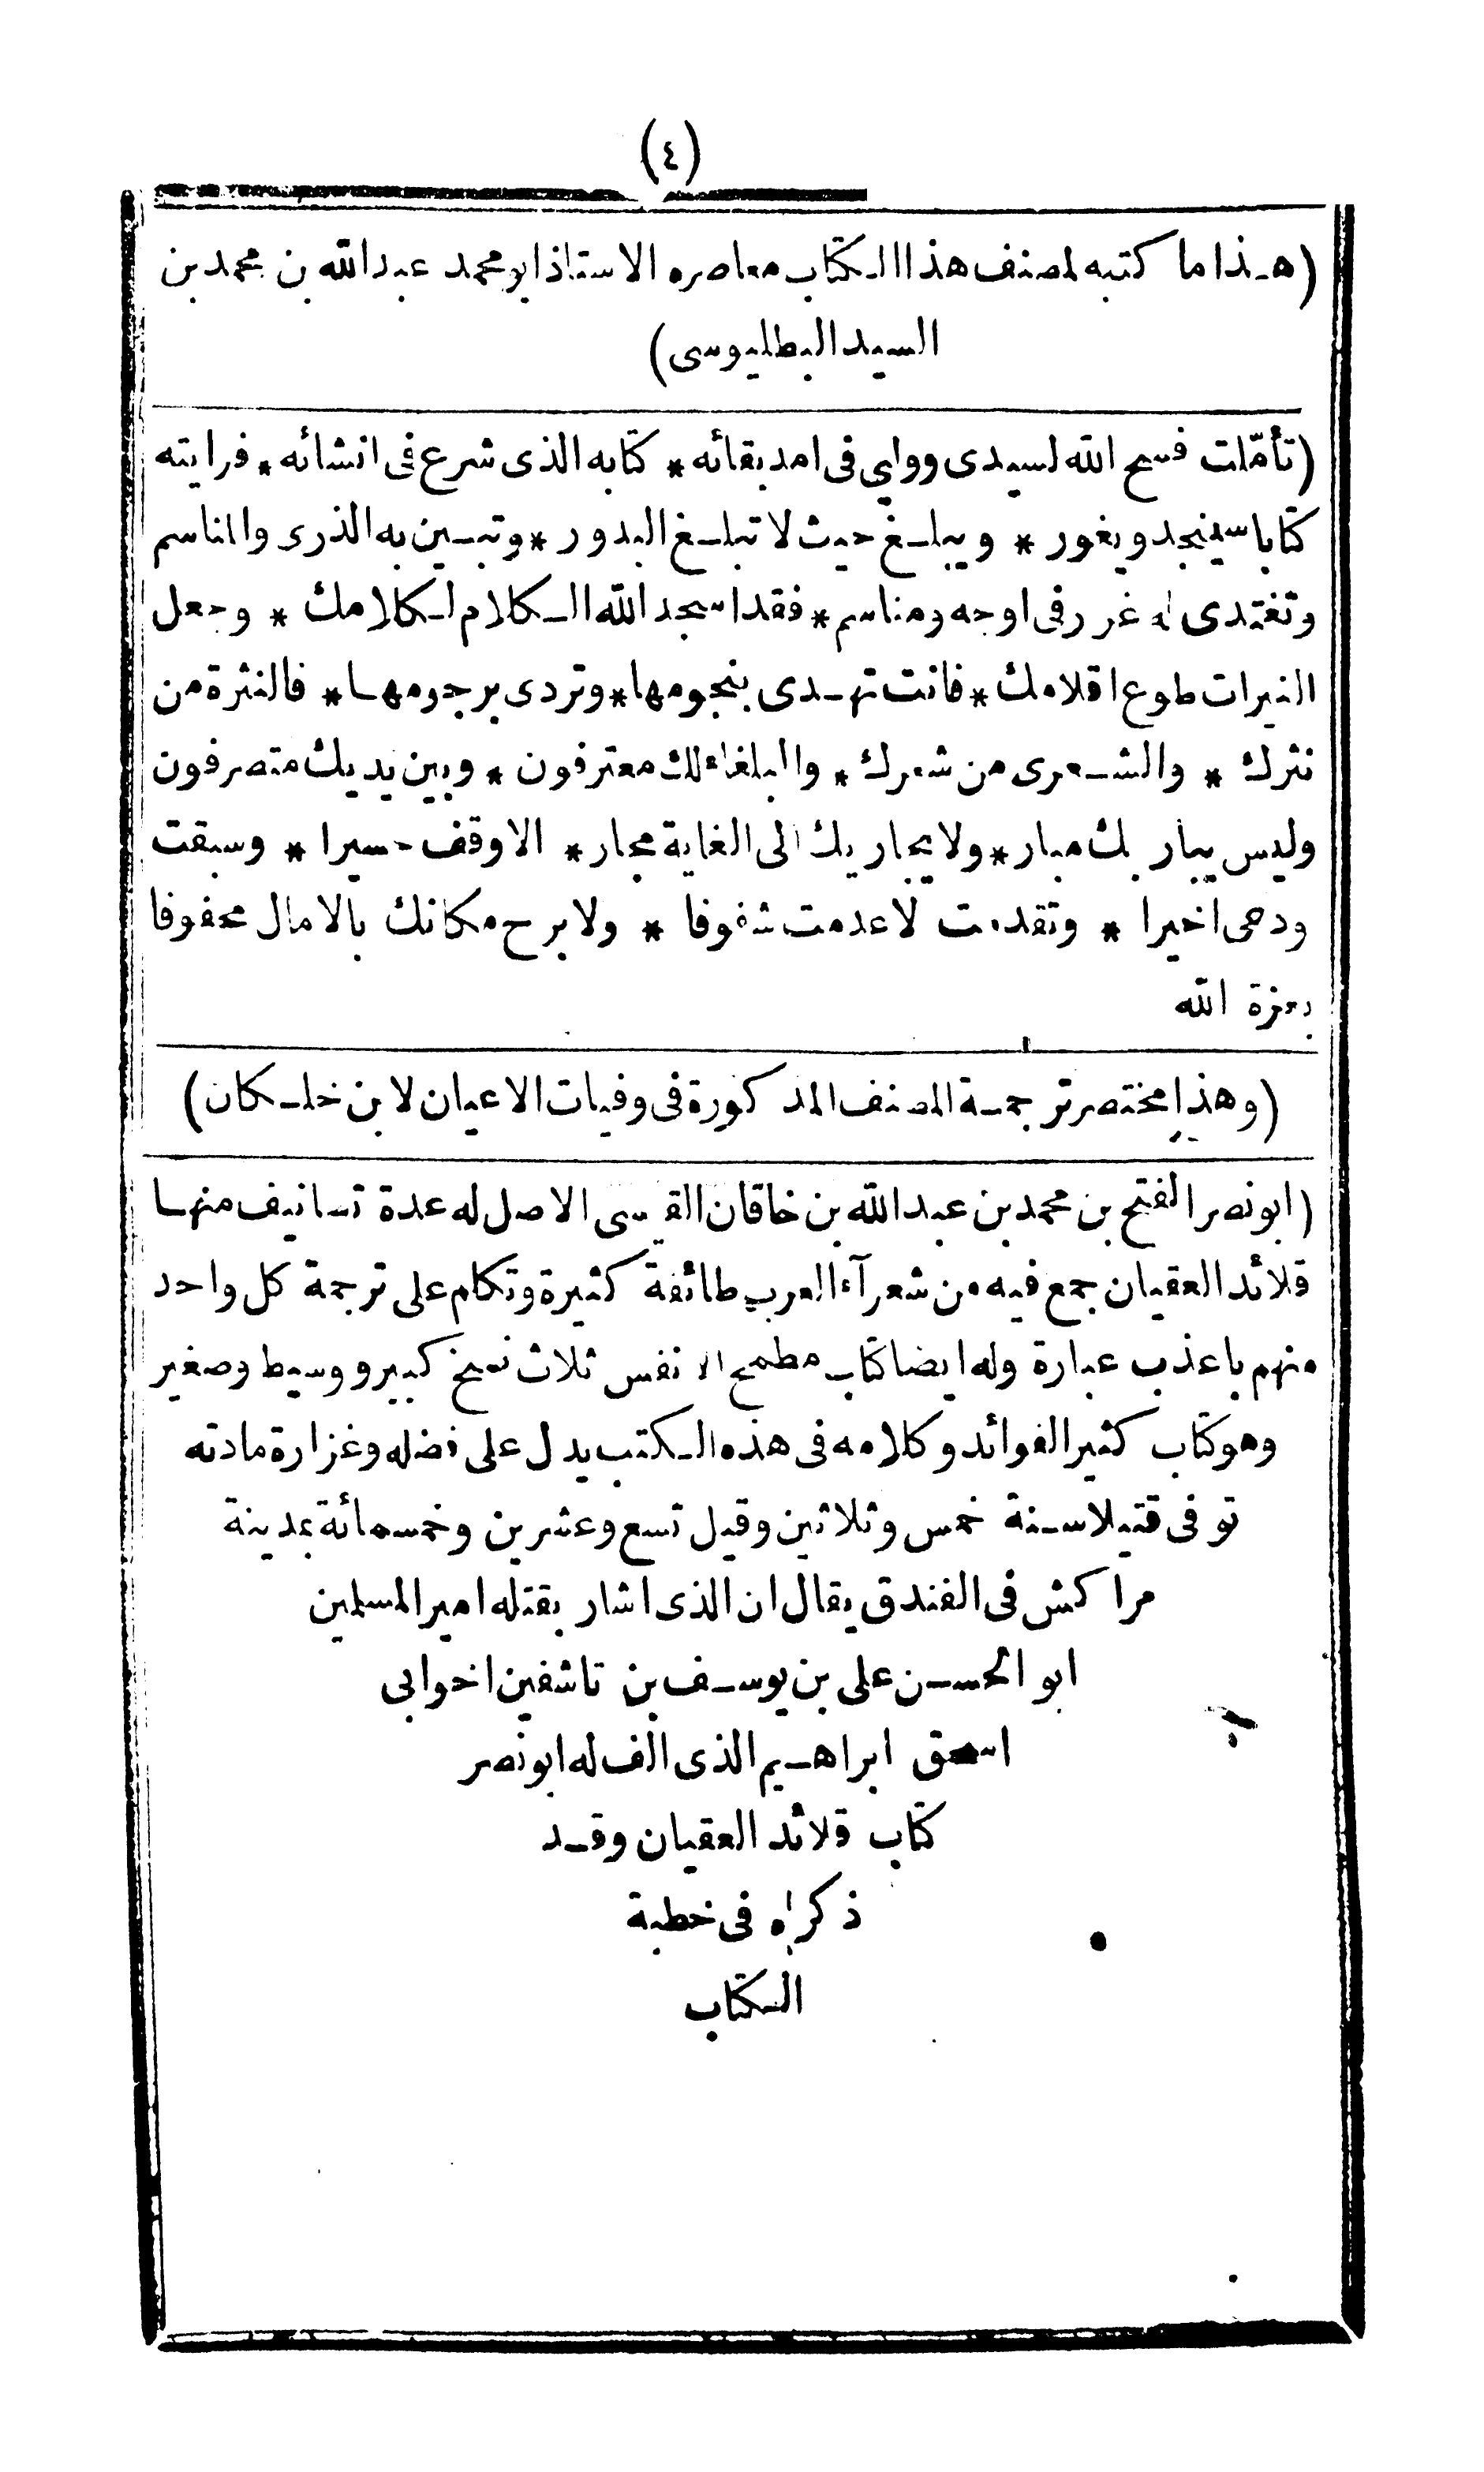 (٤)
(هذا ما كتبه لمصنف هذا الكتاب معاصره الاستاذ ابو محمد عبد الله بن محمد بن
السيد البطليوسى)
(تأمّلت فسح الله لسيدى ووليى فى امد بقائه * كتابه الذى شرع فى انشائه * فرايته
كتابا سينجد ويغور * ويبلغ حيث لا تبلغ البدور * وتبين به الذرى والمناسم
وتغتدى له غرر فى اوجه ومناسم * فقد اسجد الله الكلام لكلامك * وجعل
النيرات طوع اقلامك * فانت تهدى بنجومها * وتردى برجومها * فالنثرة من
نثرك * والشعرى من شعرك * والبلغاء لك معترفون * وبين يديك متصرفون
وليس يباريك مبار * ولا يجاريك الى الغاية مجار * الا وقف حسيرا * وسبقت
ودعى اخيرا * وتقدمت لا عدمت شفوفا * ولا برح مكانك بالامال محفوفا
بعزة الله
(وهذا مختصر ترجمة المصنف المذكورة فى وفيات الاعيان لابن خلكان)
(ابو نصر الفتح بن محمد بن عبد الله بن خاقان القيسى الاصل له عدة تسانيف منها
قلائد العقيان جمع فيه من شعرآء العرب طائفة كثيرة وتكلم على ترجمة كل واحد
منهم باعذب عبارة وله ايضا كتاب مطمح الانفس ثلاث نسخ كبير ووسيط وصغير
وهو كتاب كثير الفوائد وكلامه فى هذه الكتب يدل على فضله وغزارة مادته
توفى قتيلا سنة خمس وثلاثين وقيل تسع وعشرين وخمسمائة بمدينة
مراكش فى الفندق يقال ان الذى اشار بقتله امير المسلمين
ابو الحسن على بن يوسف بن تاشفين اخو ابى
اسحق ابراهيم الذى الف له ابو نصر
كتاب قلائد العقيان وقد
ذكراه فى خطبة
الكتاب